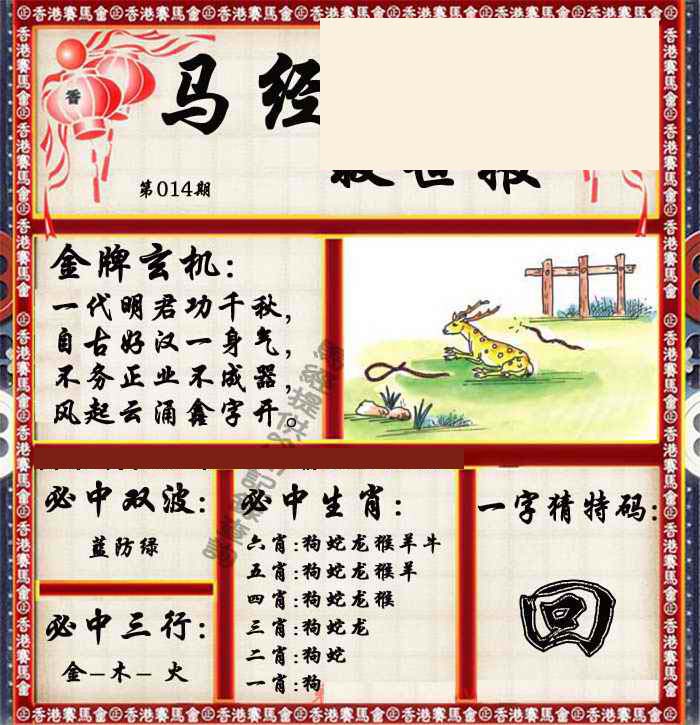 香港賽馬會
香
马经
救世报
第014期
金牌玄机:
一代明君功千秋,
自古好汉一身气,
不务正业不成器,
风起云涌鑫字开。
必中双波:
蓝防绿
必中三行:
金-木-火
必中生肖:
六肖:狗蛇龙猴羊牛
五肖:狗蛇龙猴羊
四肖:狗蛇龙猴
三肖:狗蛇龙
二肖:狗蛇
一肖:狗
一字猜特码:
回